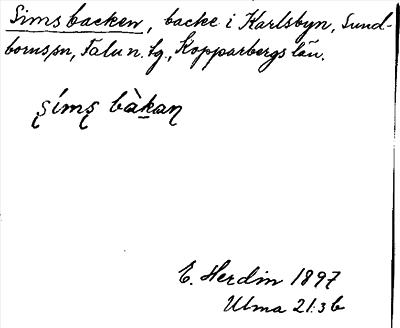 Simsbacken, backe i Karlsbyn, Sund-
bornssn, Falu n. tg., Kopparbergs län.
s̨íms̨ bàk̲an̨
E. Herdin 1897
Ulma 21:3b